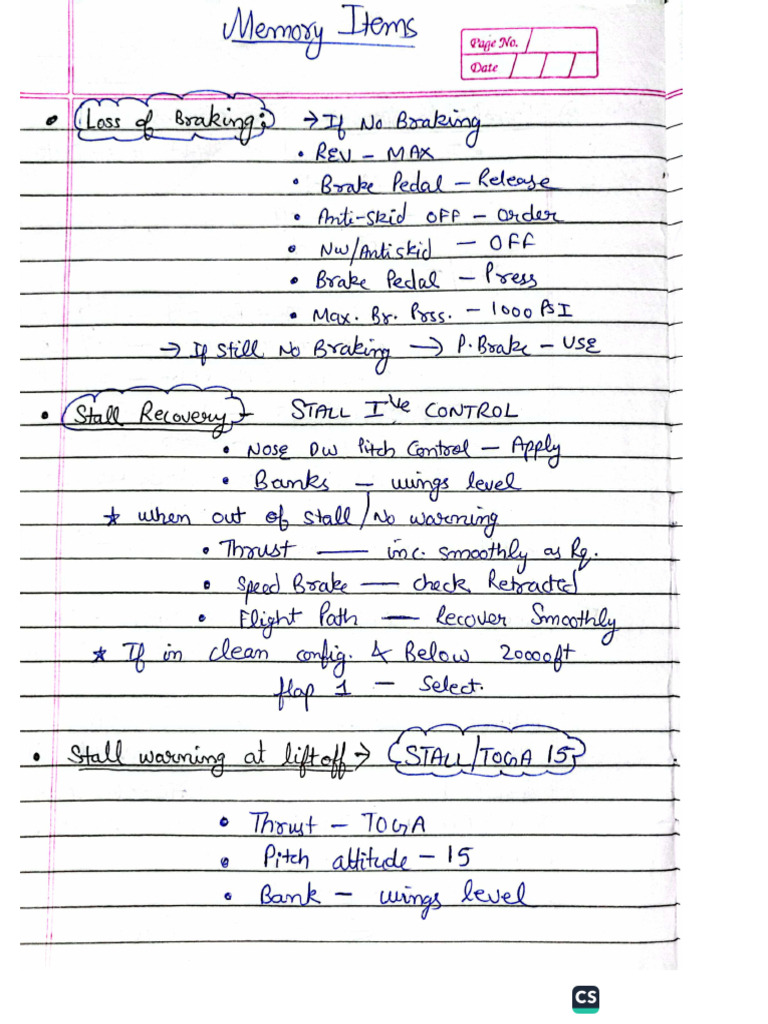 Memory Items
Page No.
Date
• Loss of Braking: → If No Braking
• REV – MAX
• Brake Pedal – Release
• Anti-skid OFF – Order
• NW/Antiskid – OFF
• Brake Pedal – Press
• Max. Br. Prss. – 1000 PSI
→ If Still No Braking → P. Brake – USE
• Stall Recovery – STALL I've CONTROL
• Nose DW Pitch Control – Apply
• Banks – wings level
* when out of stall / No warning
• Thrust — inc. smoothly as Rq.
• Speed Brake — check Retracted
• Flight Path — Recover Smoothly
* If in clean config. & Below 20000ft
flap 1 – Select.
• Stall warning at liftoff → STALL/TOGA 15
• Thrust – TOGA
• Pitch attitude – 15
• Bank – wings level
CS